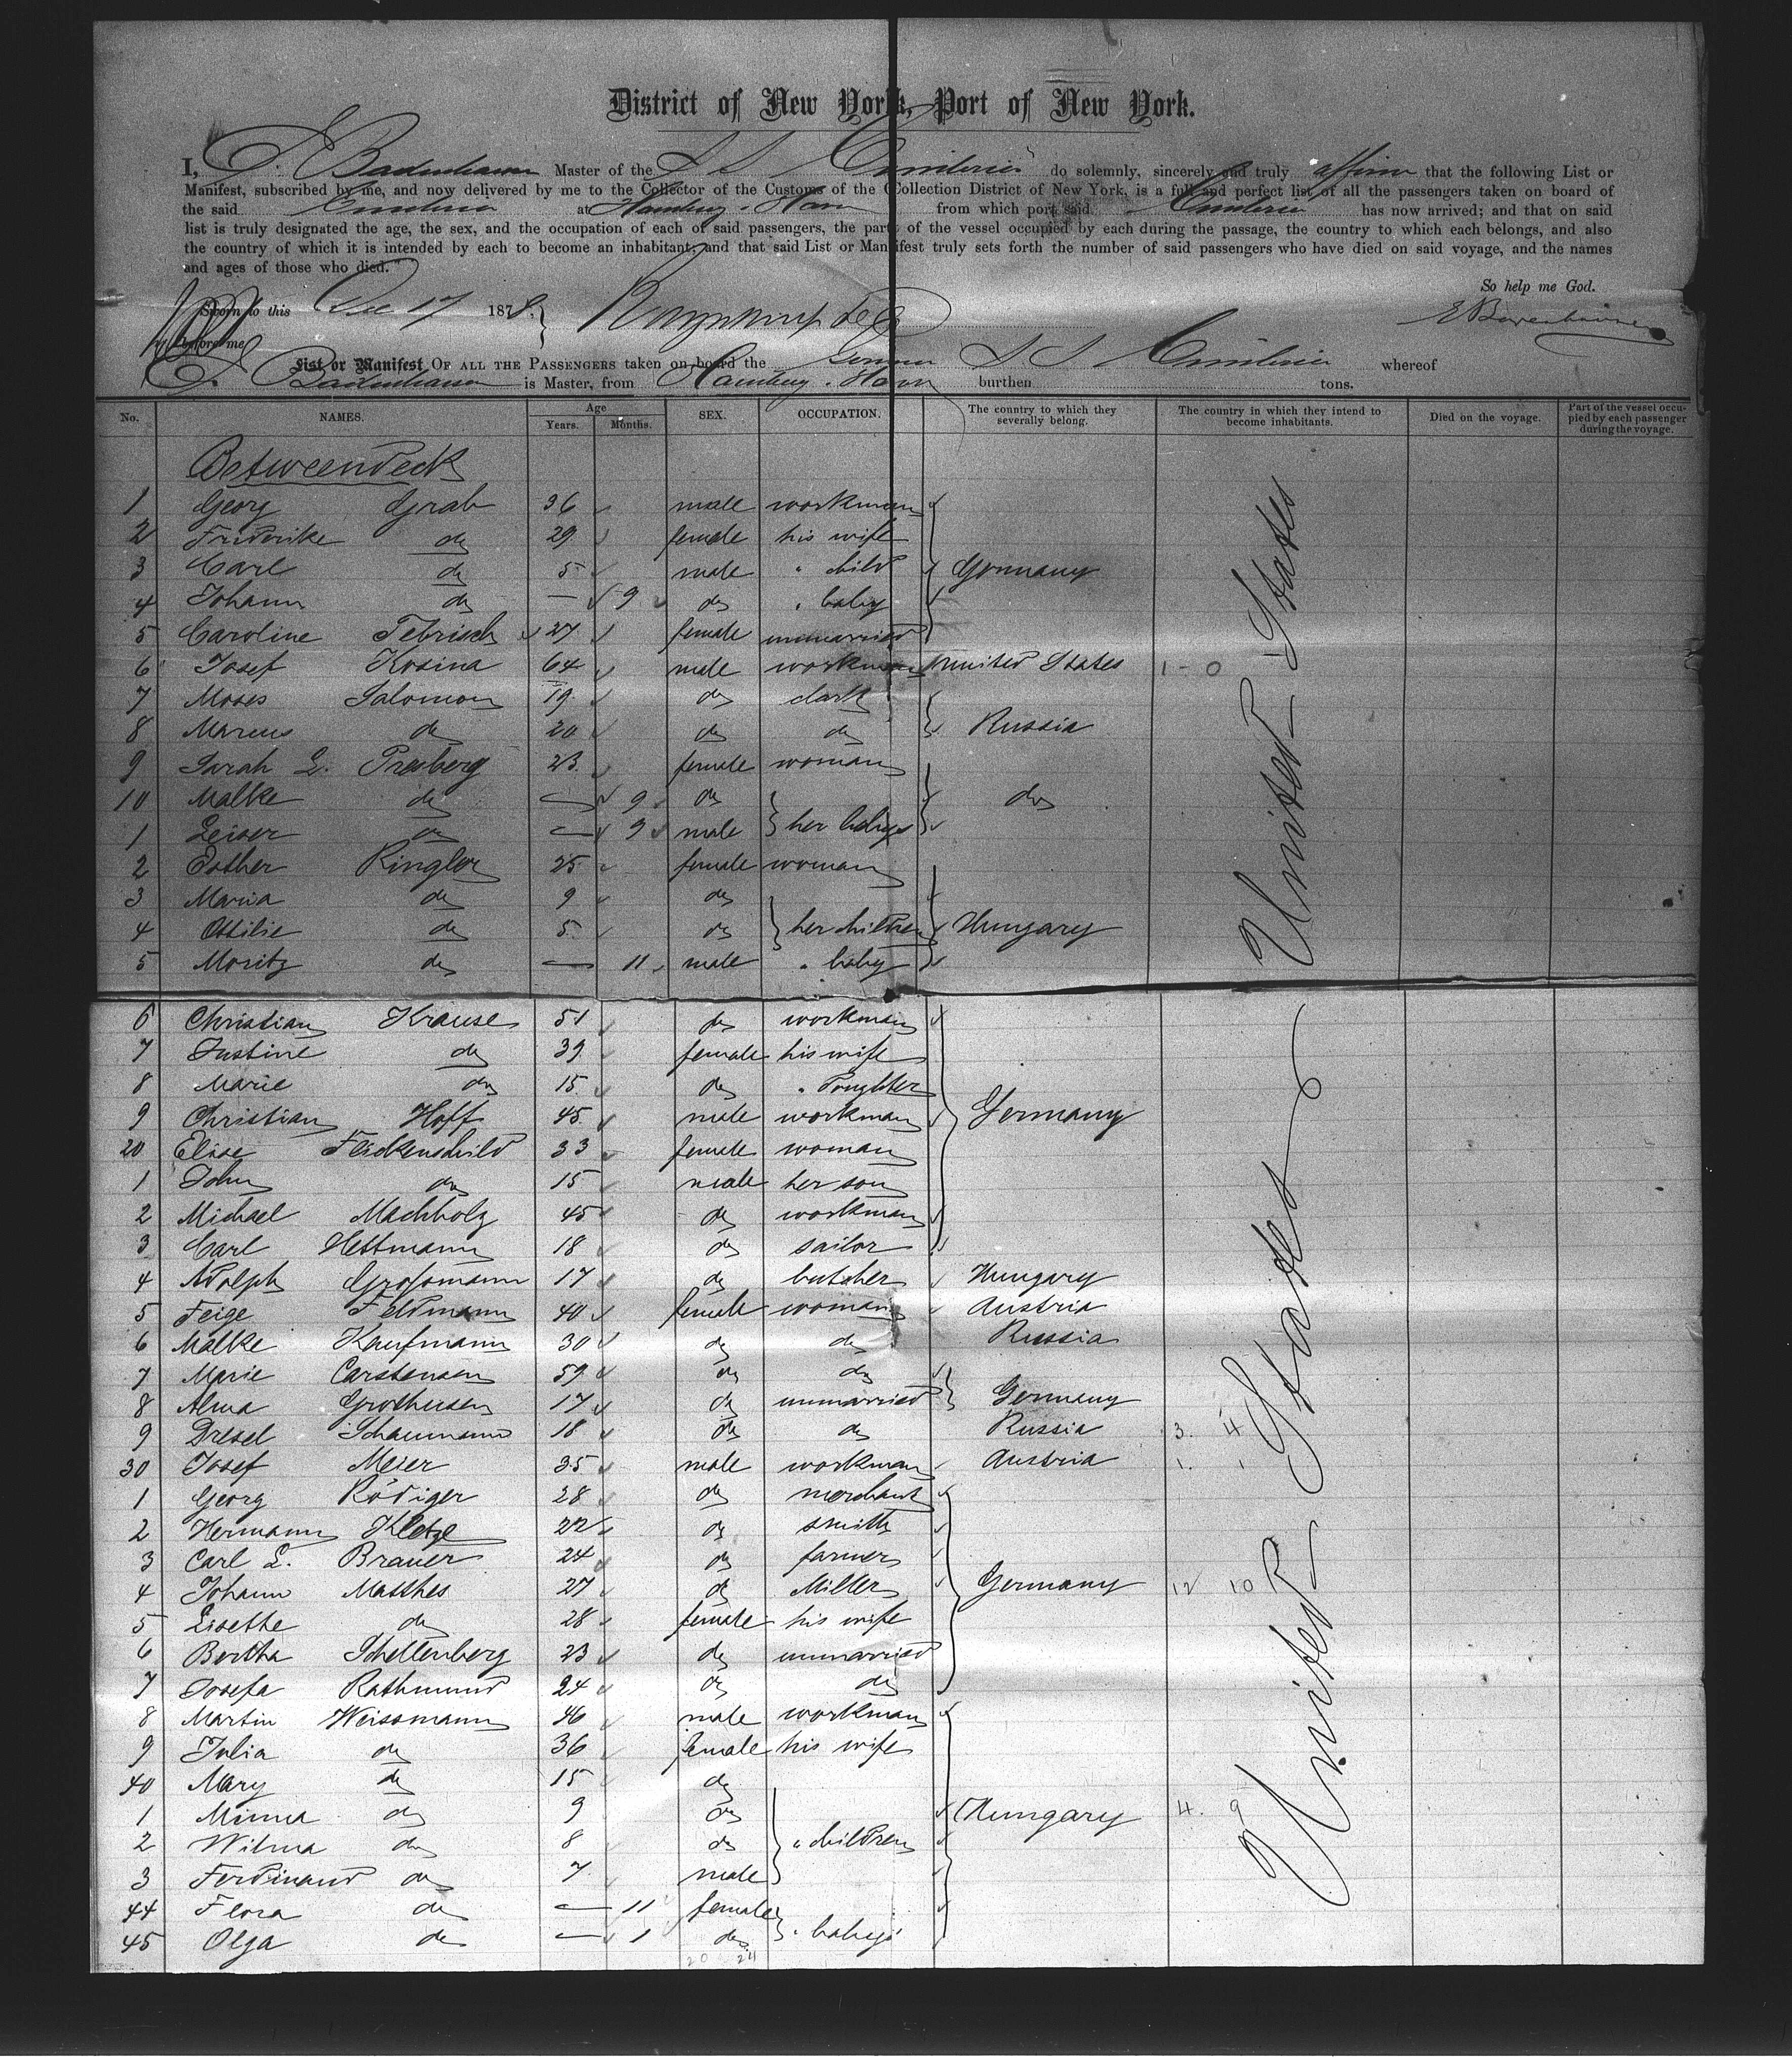 District of New York, Port of New York.
I, E. Badenhausen Master of the S S "Cimbria" do solemnly, sincerely and truly affirm that the following List or
Manifest, subscribed by me, and now delivered by me to the Collector of the Customs of the Collection District of New York, is a full and perfect list of all the passengers taken on board of
the said Cimbria at Hamburg - Havre from which port said Cimbria has now arrived; and that on said
list is truly designated the age, the sex, and the occupation of each of said passengers, the part of the vessel occupied by each during the passage, the country to which each belongs, and also
the country of which it is intended by each to become an inhabitant; and that said List or Manifest truly sets forth the number of said passengers who have died on said voyage, and the names
and ages of those who died."
So help me God.
Sworn to this Dec 17 187
before me
List or Manifest OF ALL THE PASSENGERS taken on board the German S S Cimbria whereof
E. Badenhausen is Master, from Hamburg - Havre burthen tons.
No. NAMES. Age Years. Months. SEX. OCCUPATION. The country to which they severally belong. The country in which they intend to become inhabitants. Died on the voyage. Part of the vessel occupied by each passenger during the voyage.
Betweendeck
United States
1 Georg Grab 36 male workman
2 Friderike do 29 female his wife
3 Carl do 5 male " child Germany
4 Johann do — 9 do " baby
5 Caroline Tebrisch 27 female unmarried
6 Josef Kosina 64 male workman United States 1 - 0
7 Moses Salomon 19 do clark
8 Marcus do 20 do do Russia
9 Sarah L. Freiberg 23 female woman
10 Malke do — 9 do do
1 Leiser do — 9 male her babys
2 Esther Ringler 25 female woman
3 Maria do 9 do
4 Ottilie do 5 do her children Hungary
5 Moritz do — 11 male " baby
6 Christian Krause 51 do workman
7 Justine do 39 female his wife
8 Marie do 15 do " doughter
9 Christian Hoff 45 male workman Germany
20 Elise Flickenschild 33 female woman
1 John do 15 male her son
2 Michael Machholz 45 do workman
3 Carl Hettmann 18 do sailor
4 Adolph Grossmann 17 do butcher Hungary
5 Feige Feldmann 40 female woman Austria
6 Malke Kaufmann 30 do do Russia
7 Marie Carstensen 59 do do
8 Alma Grothusen 17 do unmarried Germany
9 Dresel Schaumann 18 do do Russia 3. 4
30 Josef Meier 35 male workman Austria 1. 1
1 Georg Rödiger 28 do merchant
2 Hermann Kletzl 22 do smith
3 Carl L. Brauer 24 do farmer
4 Johann Matthes 27 do Miller Germany 12 10
5 Lisette do 28 female his wife
6 Bertha Schellenberg 23 do unmarried
7 Josefa Rathmund 24 do do
8 Martin Weissmann 46 male workman
9 Julia do 36 female his wife
40 Mary do 15 do
1 Minna do 9 do Hungary 4. 9
2 Wilma do 8 do " children
3 Ferdinand do 7 male
44 Flora do — 11 female
45 Olga do — 1 do " babys
20 24
United States